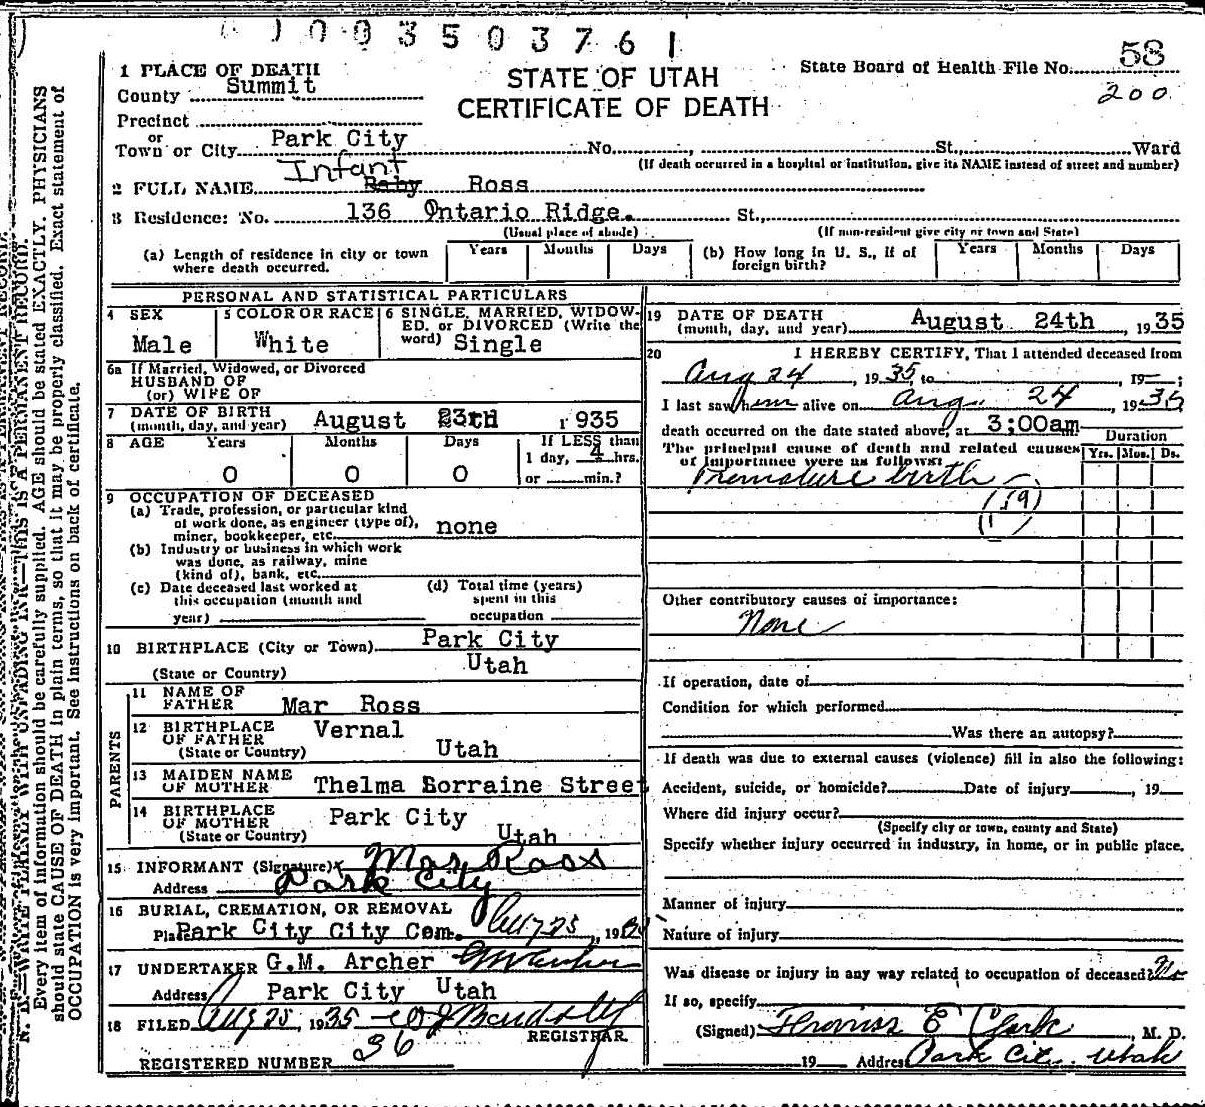 1003503761
STATE OF UTAH
CERTIFICATE OF DEATH
State Board of Health File No. 58
200
1 PLACE OF DEATH
County Summit
Precinct
or
Town or City Park City No. , St., Ward
(If death occurred in a hospital or institution, give its NAME instead of street and number)
Infant
2 FULL NAME Baby Ross
3 Residence: No. 136 Ontario Ridge. St.,
(Usual place of abode) (If non-resident give city or town and State)
(a) Length of residence in city or town where death occurred. Years Months Days
(b) How long in U. S., if of foreign birth? Years Months Days
PERSONAL AND STATISTICAL PARTICULARS
4 SEX
Male
5 COLOR OR RACE
White
6 SINGLE, MARRIED, WIDOW-
ED, or DIVORCED (Write the
word) Single
6a If Married, Widowed, or Divorced
HUSBAND OF
(or) WIFE OF
7 DATE OF BIRTH
(month, day, and year) August 23rd 1935
8 AGE Years Months Days If LESS than
1 day, 4 hrs.
0 0 0 or min.?
9 OCCUPATION OF DECEASED
(a) Trade, profession, or particular kind
of work done, as engineer (type of),
miner, bookkeeper, etc. none
(b) Industry or business in which work
was done, as railway, mine
(kind of), bank, etc.
(c) Date deceased last worked at
this occupation (month and
year)
(d) Total time (years)
spent in this
occupation
10 BIRTHPLACE (City or Town) Park City
(State or Country) Utah
PARENTS
11 NAME OF
FATHER Mar Ross
12 BIRTHPLACE
OF FATHER Vernal
(State or Country) Utah
13 MAIDEN NAME
OF MOTHER Thelma Lorraine Street
14 BIRTHPLACE
OF MOTHER Park City
(State or Country) Utah
15 INFORMANT (Signature) x Mar Ross
Address Park City
16 BURIAL, CREMATION, OR REMOVAL
Place Park City City Cem. Aug 25, 19
17 UNDERTAKER G.M. Archer GM Archer
Address Park City Utah
18 FILED Aug 25, 1935
REGISTRAR.
REGISTERED NUMBER 36
19 DATE OF DEATH
(month, day, and year) August 24th, 1935
20 I HEREBY CERTIFY, That I attended deceased from
Aug 24, 1935, to , 19 ;
I last saw him alive on Aug. 24, 1935
death occurred on the date stated above, at 3:00am
The principal cause of death and related causes
of importance were as follows:
Duration
Yrs. Mos. Ds.
Premature birth
(159)
Other contributory causes of importance:
None
If operation, date of
Condition for which performed
Was there an autopsy?
If death was due to external causes (violence) fill in also the following:
Accident, suicide, or homicide? Date of injury , 19
Where did injury occur?
(Specify city or town, county and State)
Specify whether injury occurred in industry, in home, or in public place.
Manner of injury
Nature of injury
Was disease or injury in any way related to occupation of deceased? No
If so, specify
(Signed) Thomas E Clark, M. D.
19 Address Park City, Utah
N. B.—WRITE PLAINLY WITH UNFADING INK—THIS IS A PERMANENT RECORD.
Every item of information should be carefully supplied. AGE should be stated EXACTLY. PHYSICIANS
should state CAUSE OF DEATH in plain terms, so that it may be properly classified. Exact statement of
OCCUPATION is very important. See instructions on back of certificate.